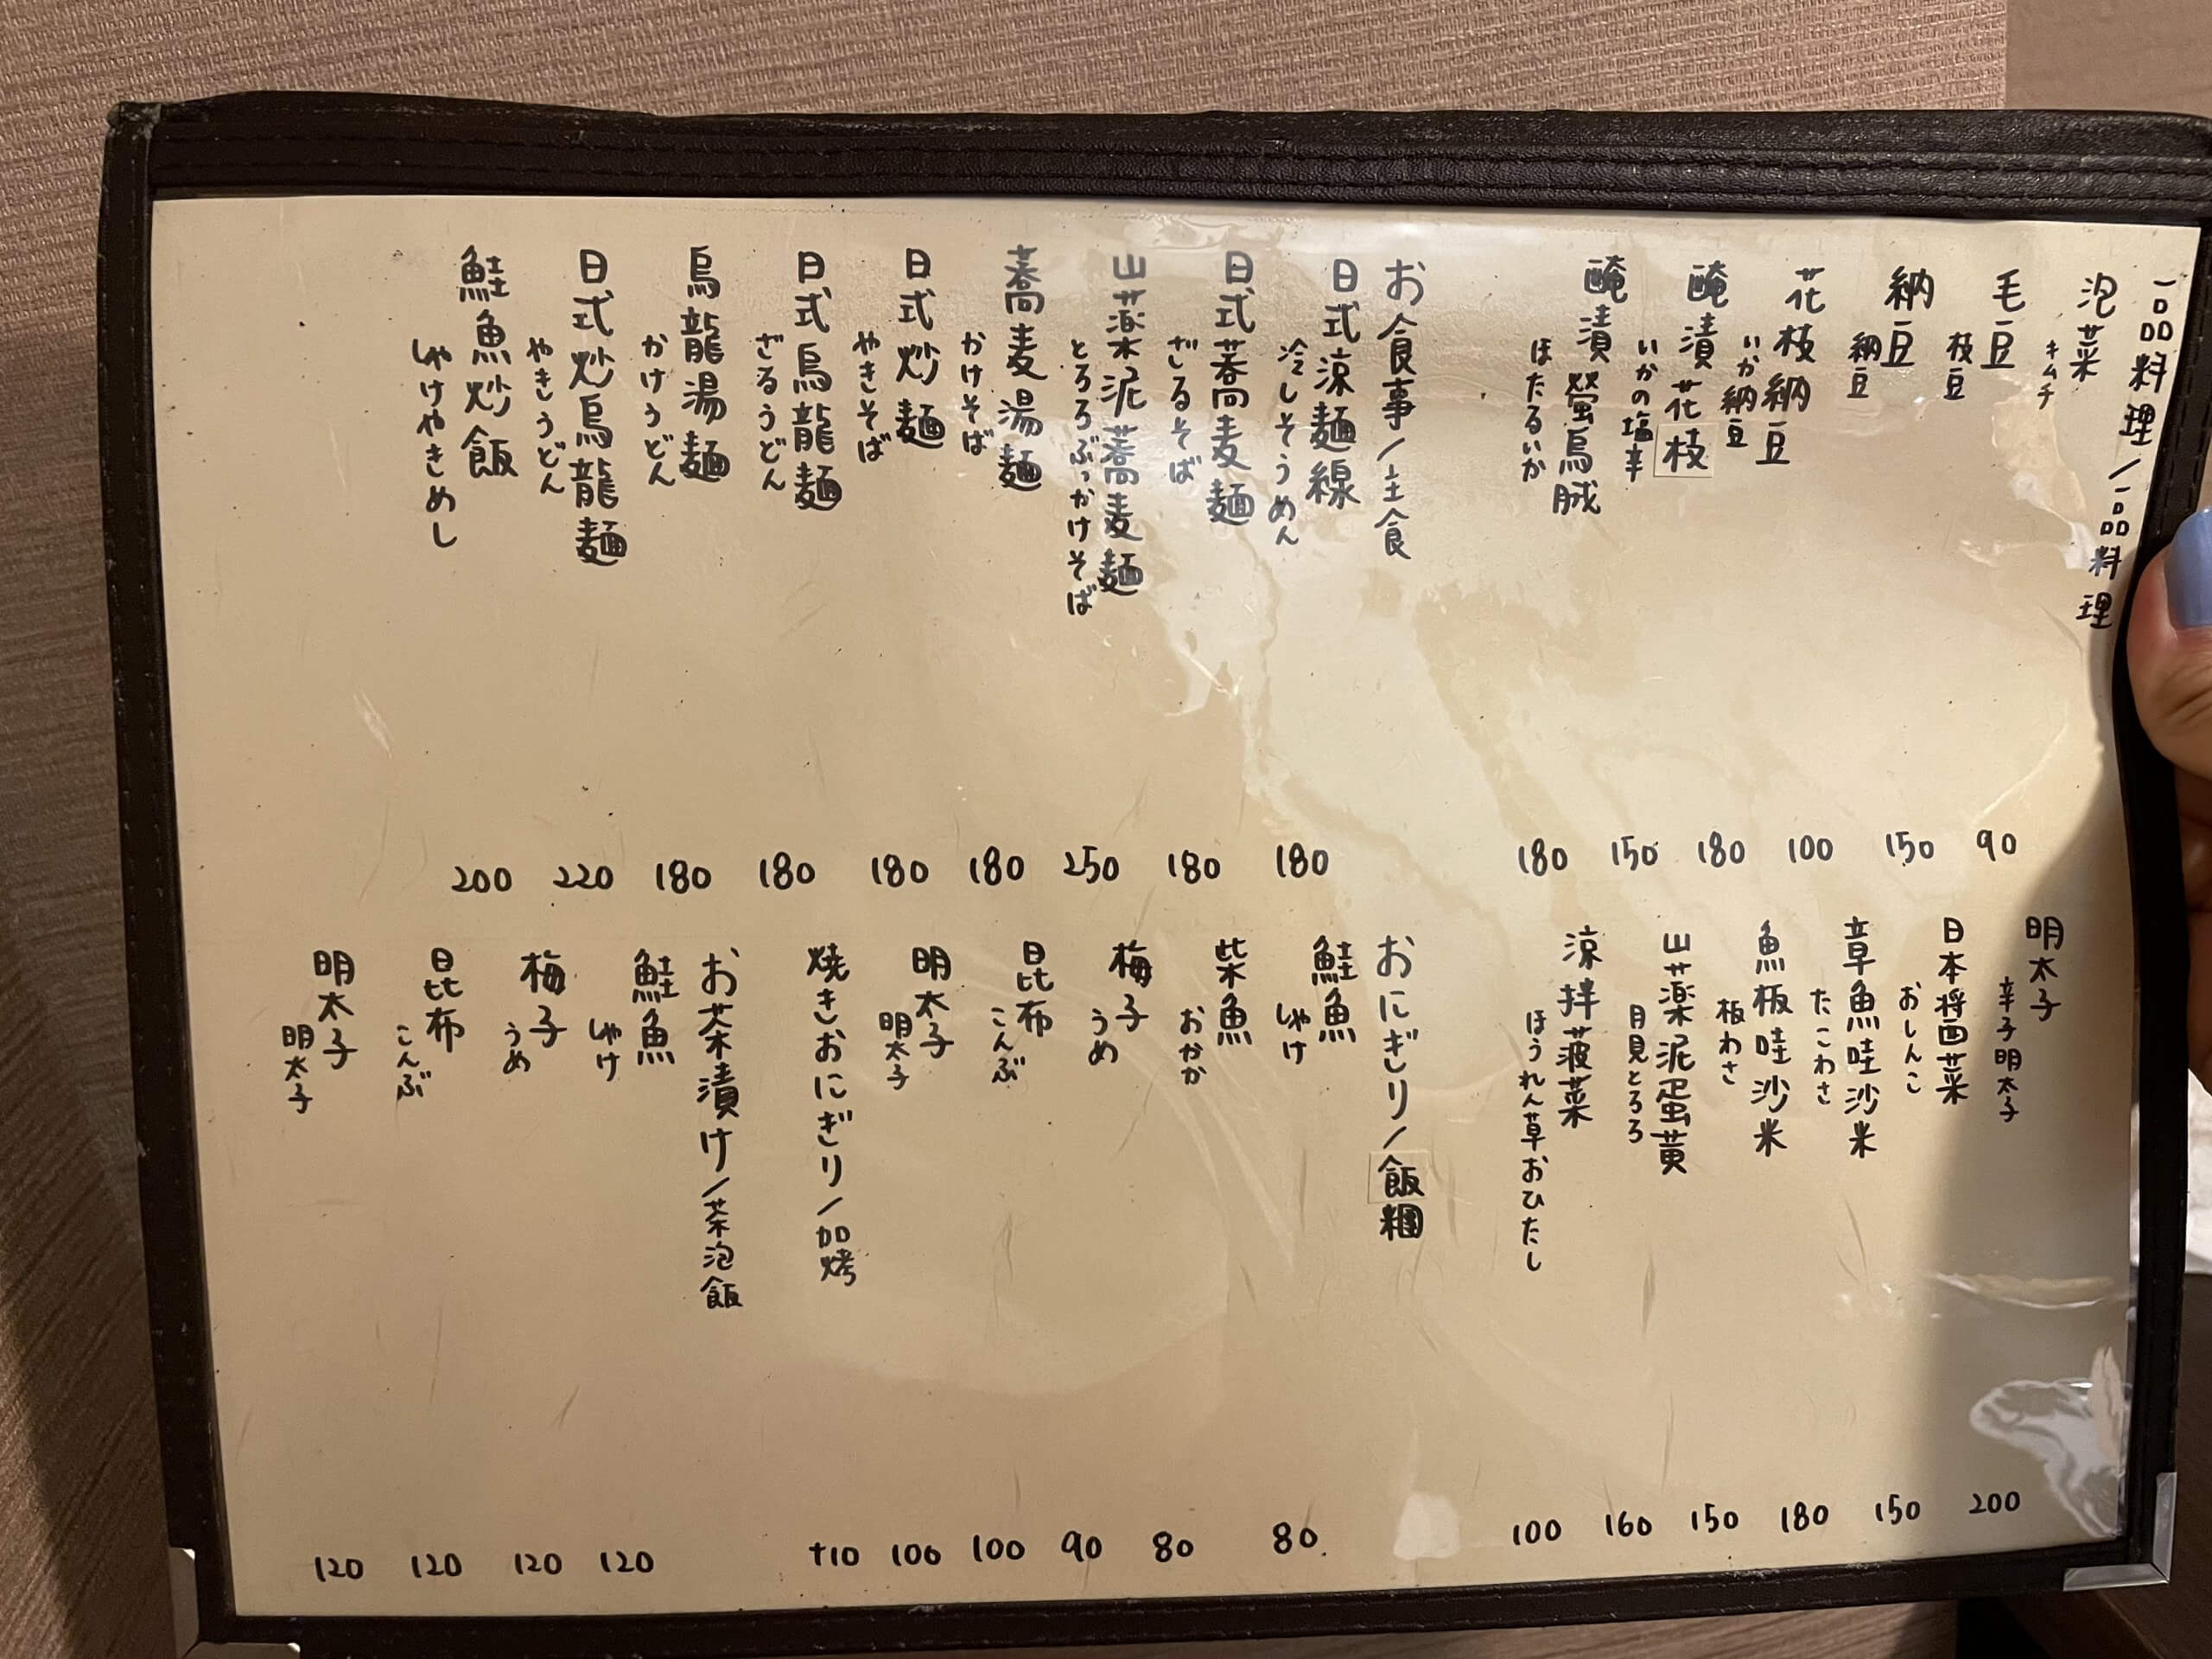 一品料理/一品料理
泡菜
キムチ
90
毛豆
枝豆
150
納豆
納豆
100
花枝納豆
いか納豆
180
醃漬花枝
いかの塩辛
150
醃漬螢烏賊
ほたるいか
180
お食事/主食
日式涼麺線
冷しそうめん
180
日式蕎麦麺
ざるそば
180
山薬泥蕎麦麺
とろろぶっかけそば
250
蕎麦湯麺
かけそば
180
日式炒麺
やきそば
180
日式烏龍麺
ざるうどん
180
烏龍湯麺
かけうどん
180
日式炒烏龍麺
やきうどん
220
鮭魚炒飯
しゃけやきめし
200
明太子
辛子明太子
200
日本醤菜
おしんこ
150
章魚哇沙米
たこわさ
180
魚板哇沙米
板わさ
150
山薬泥蛋黄
月見とろろ
160
涼拌菠菜
ほうれん草おひたし
100
おにぎり/飯糰
鮭魚
しゃけ
80
柴魚
おかか
80
梅子
うめ
90
昆布
こんぶ
100
明太子
明太子
100
焼きおにぎり/加烤
+10
お茶漬け/茶泡飯
鮭魚
しゃけ
120
梅子
うめ
120
昆布
こんぶ
120
明太子
明太子
120